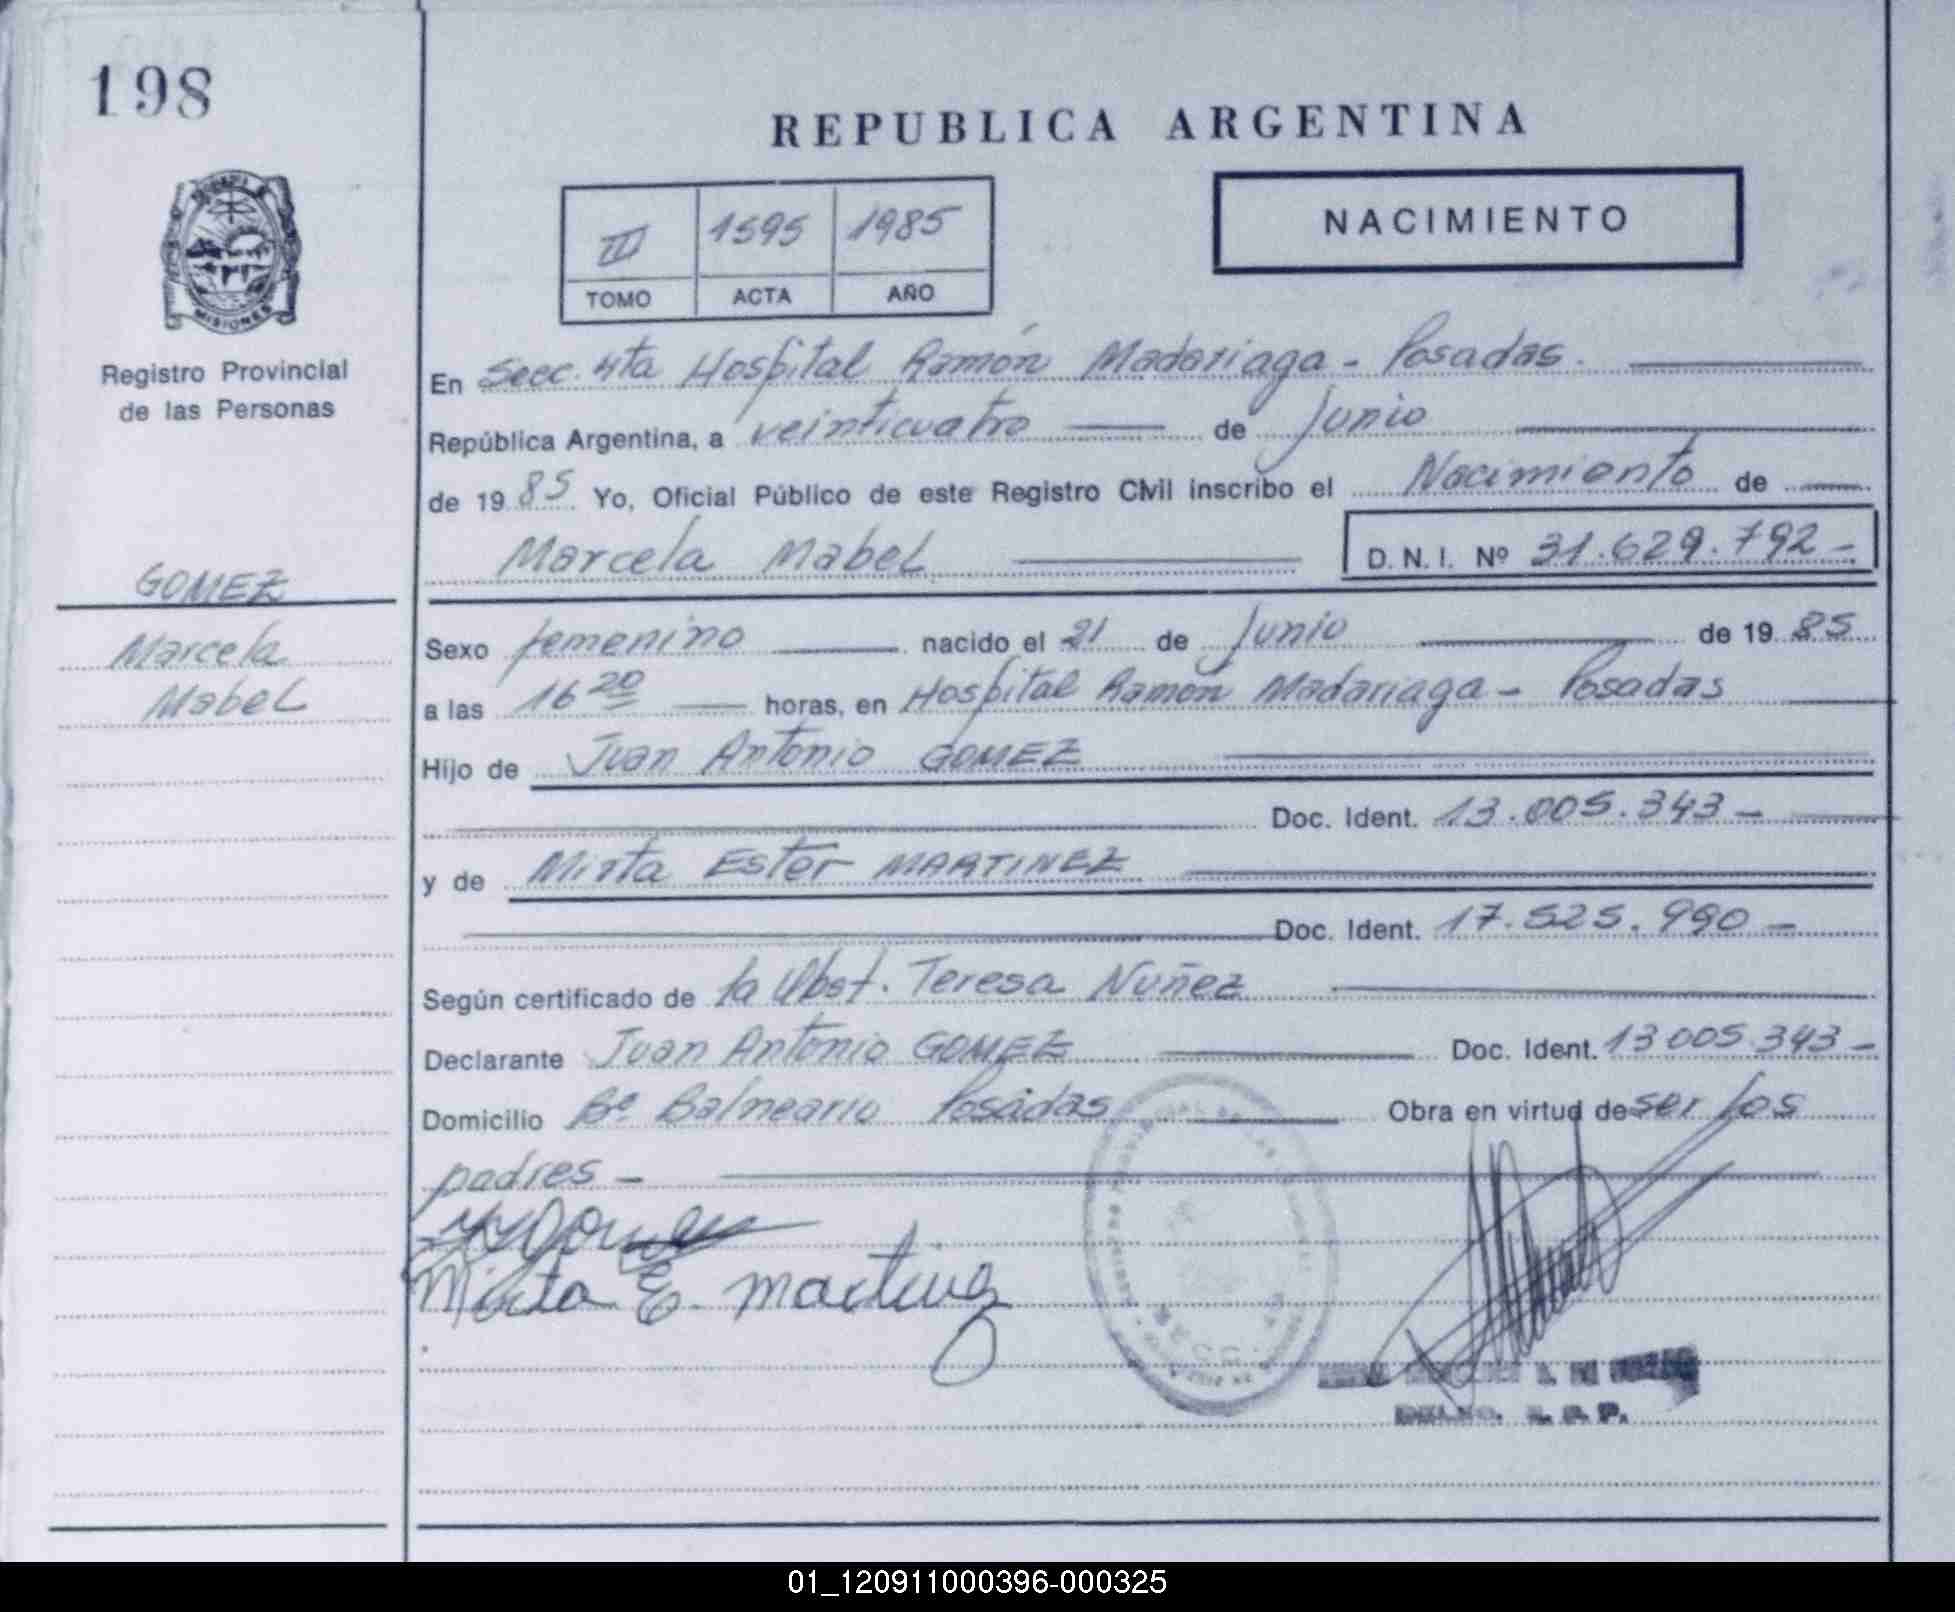 198
REPUBLICA ARGENTINA
III 1595 1985
TOMO ACTA AÑO
NACIMIENTO
MISIONES
Registro Provincial
de las Personas
En Secc. 4ta Hospital Ramón Madariaga - Posadas.
República Argentina, a veinticuatro de Junio
de 19 85 Yo, Oficial Público de este Registro Civil inscribo el Nacimiento de
Marcela Mabel D. N. I. Nº 31.629.792-
GOMEZ
Marcela
Mabel
Sexo femenino nacido el 21 de Junio de 19 85
a las 16 20 horas, en Hospital Ramón Madariaga - Posadas
Hijo de Juan Antonio GOMEZ
Doc. Ident. 13.005.343-
y de Mirta Ester MARTINEZ
Doc. Ident. 17.525.990-
Según certificado de la Obst. Teresa Nuñez
Declarante Juan Antonio GOMEZ Doc. Ident. 13 005 343-
Domicilio Bº Balneario Posadas Obra en virtud de ser los
padres -
Mirta E. Martinez
R. P.
01_120911000396-000325